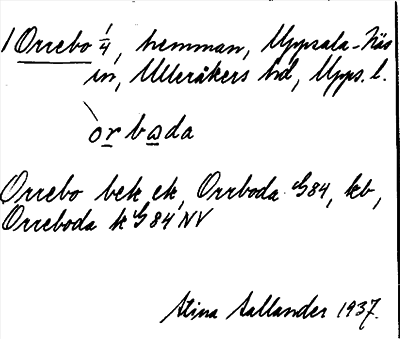 1 Orrebo 1/4, hemman, Uppsala-Näs
sn, Ulleråkers hd, Upps. l.
òrbada
Orrebo bek ek, Orrboda G84, kb,
Orreboda k G84 NV
Stina Sallander 1937.